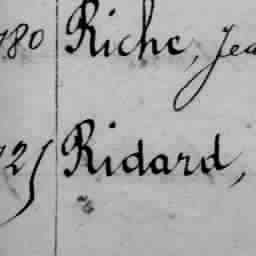 780 Riche, Jea
725 Ridard,